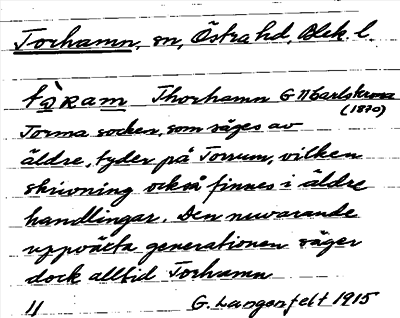 Torhamn, sn, Östra hd, Blek l.
tòram Thorhamn G II Carlskrona
(1870)
Torma socken, som säges av
äldre, tyder på Torrum, vilken
skrivning också finnes i äldre
handlingar. Den nuvarande
uppväxta generationen säger
dock alltid Torhamn
11 G. Langenfelt 1915